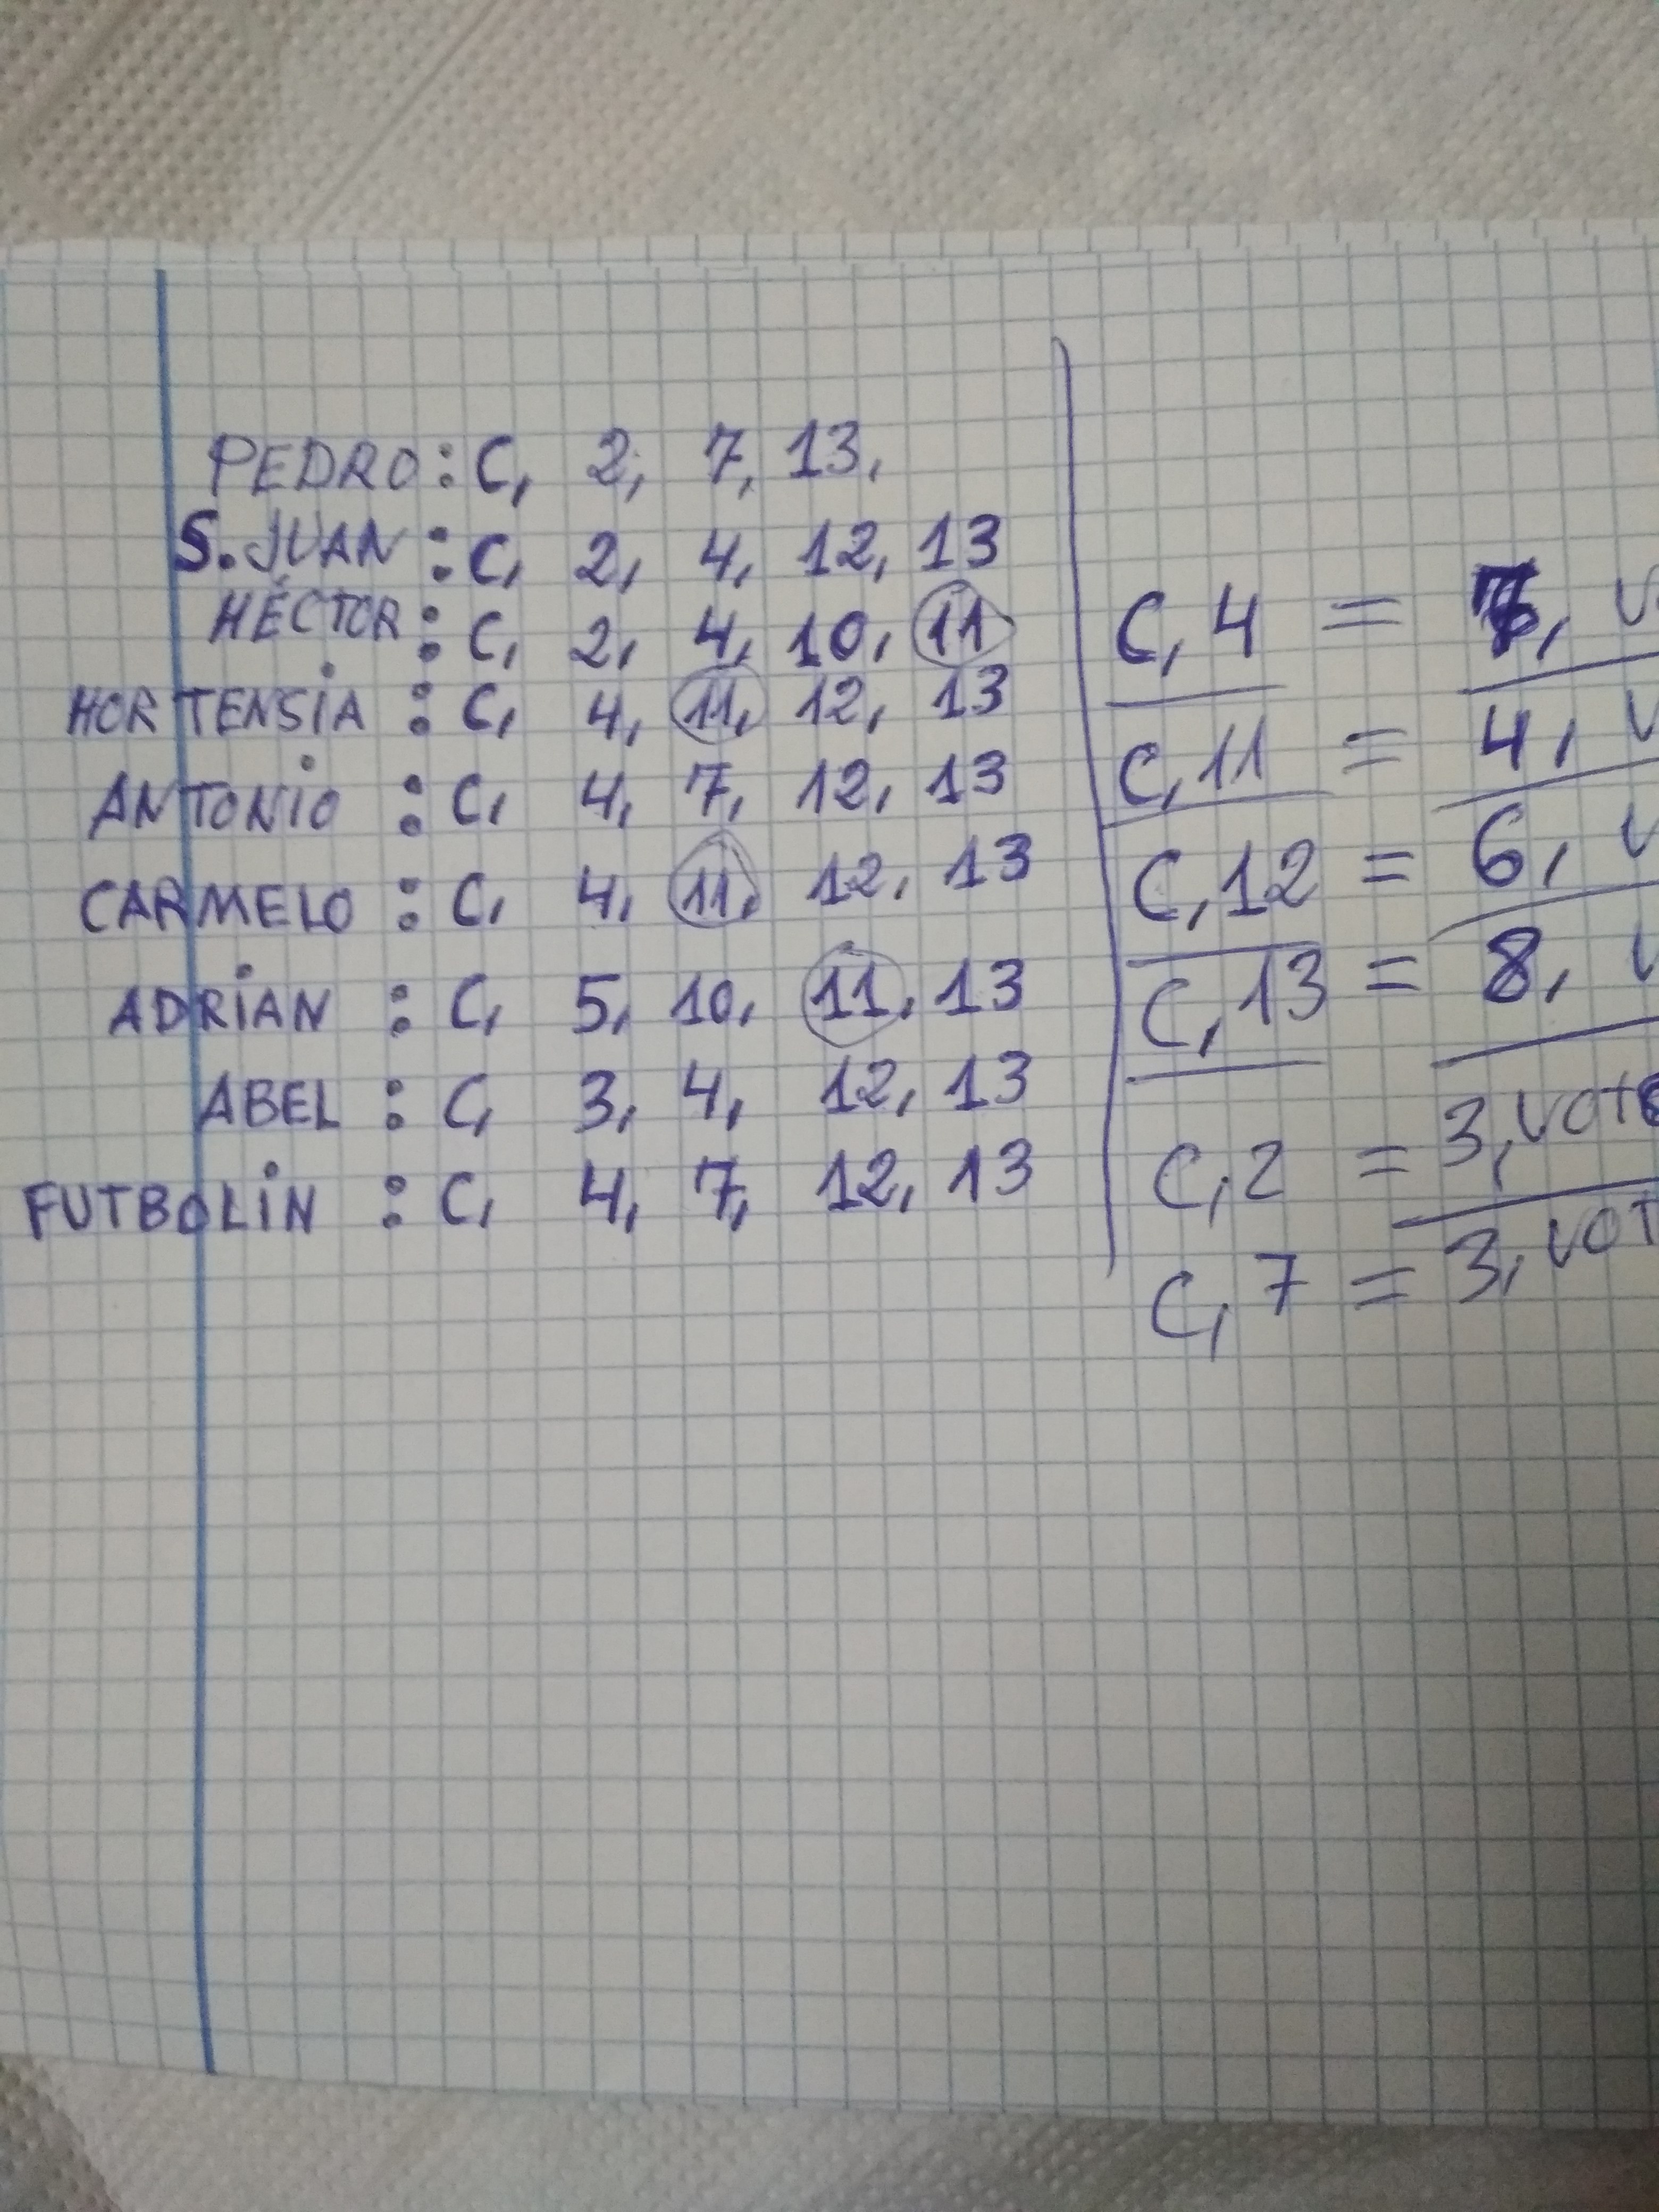 PEDRO: C, 2, 7, 13.
S. JUAN : C, 2, 4, 12, 13
HÉCTOR : C, 2, 4, 10, 11
HORTENSIA : C, 4, 11, 12, 13
ANTONIO : C, 4, 7, 12, 13
CARMELO : C, 4, 11, 12, 13
ADRIAN : C, 5, 10, 11, 13
ABEL : C, 3, 4, 12, 13
FUTBOLIN : C, 4, 7, 12, 13
C, 4 = , V
C, 11 = 4, V
C, 12 = 6, V
C, 13 = 8, V
C, 2 = 3, VOTO
C, 7 = 3, VOT